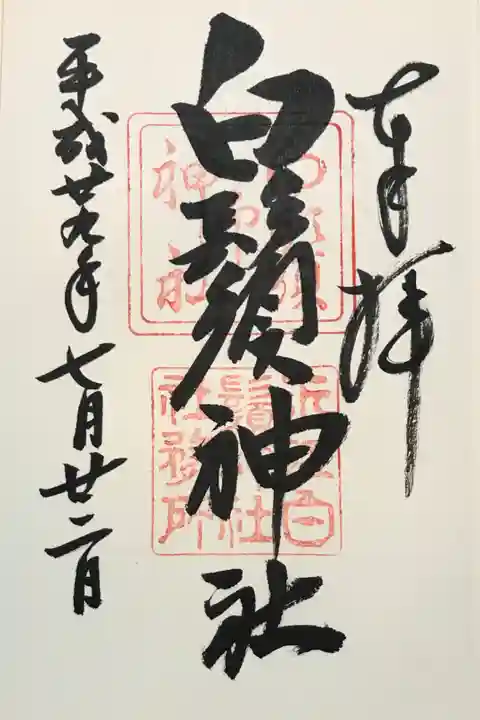 奉拝
白鬚神社
平成廿九年七月廿二日
近江白
鬚神社
社務所